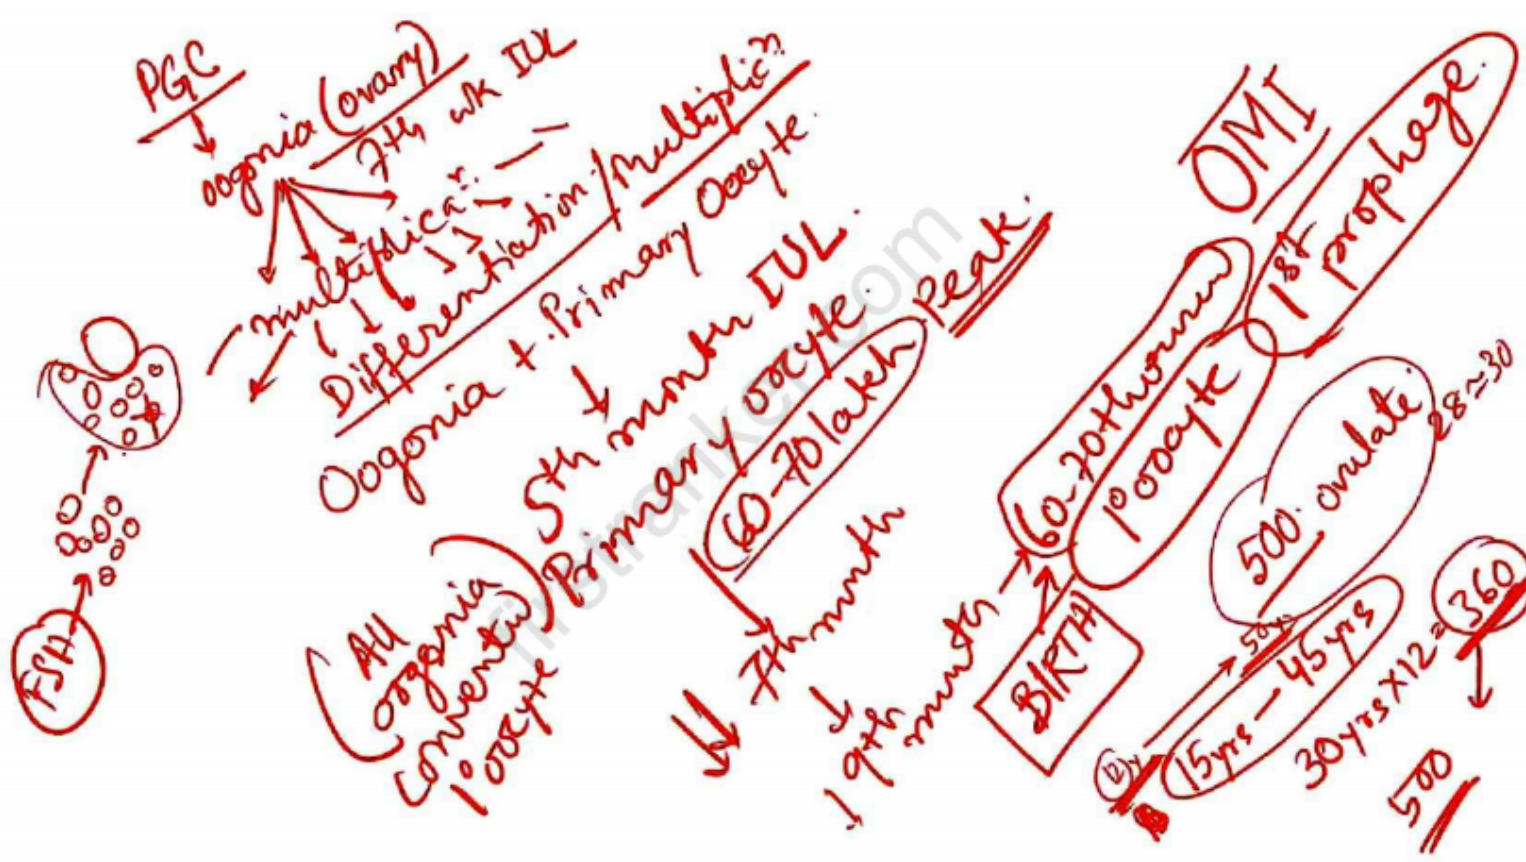 PGC
oogonia (ovarry)
7th wk IUL
multiplica:n.
Differentiation/Multiplic:n.
Oogonia + Primary Oocyte.
5th month IUL.
Primary oocyte.
60-70 lakh
Peak.
All
oogonia
converted
1° oocyte
7th month
9th month
BIRTH
60-70 thousand
1° oocyte
OMI
1st prophage.
500. ovulate.
28 ≈ 30
50yrs
12yr
15yrs - 45yrs
30yrs x 12 = 360
500
FSH
firstranker.com